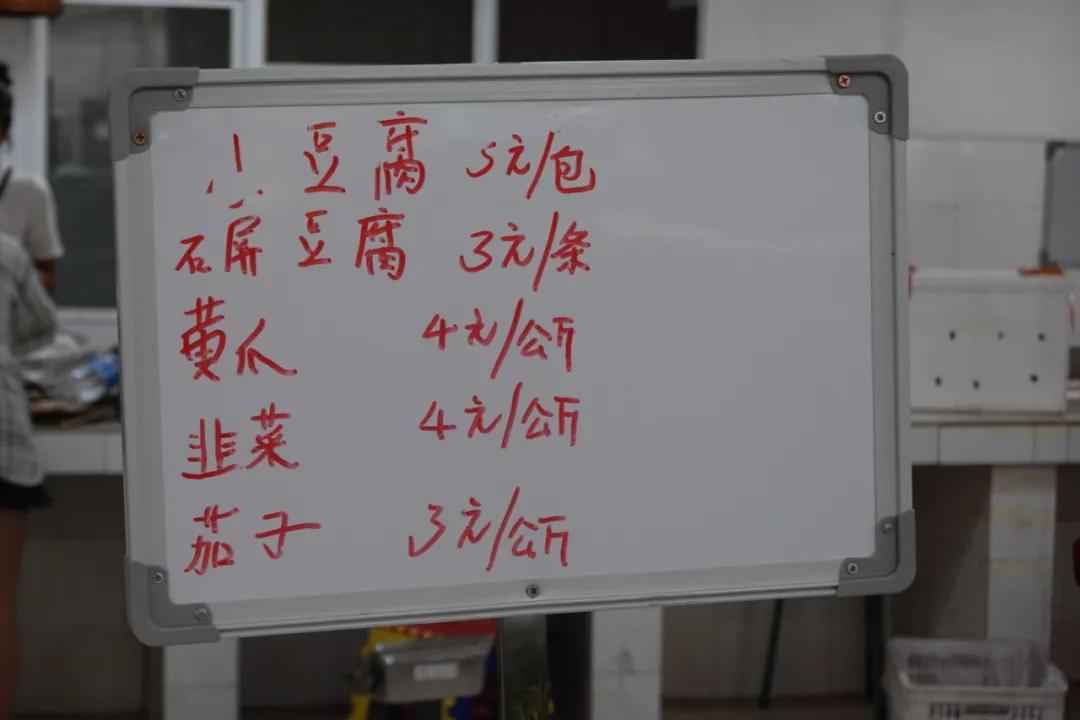 小豆腐 5元/包
石屏豆腐 3元/条
黄瓜 4元/公斤
韭菜 4元/公斤
茄子 3元/公斤